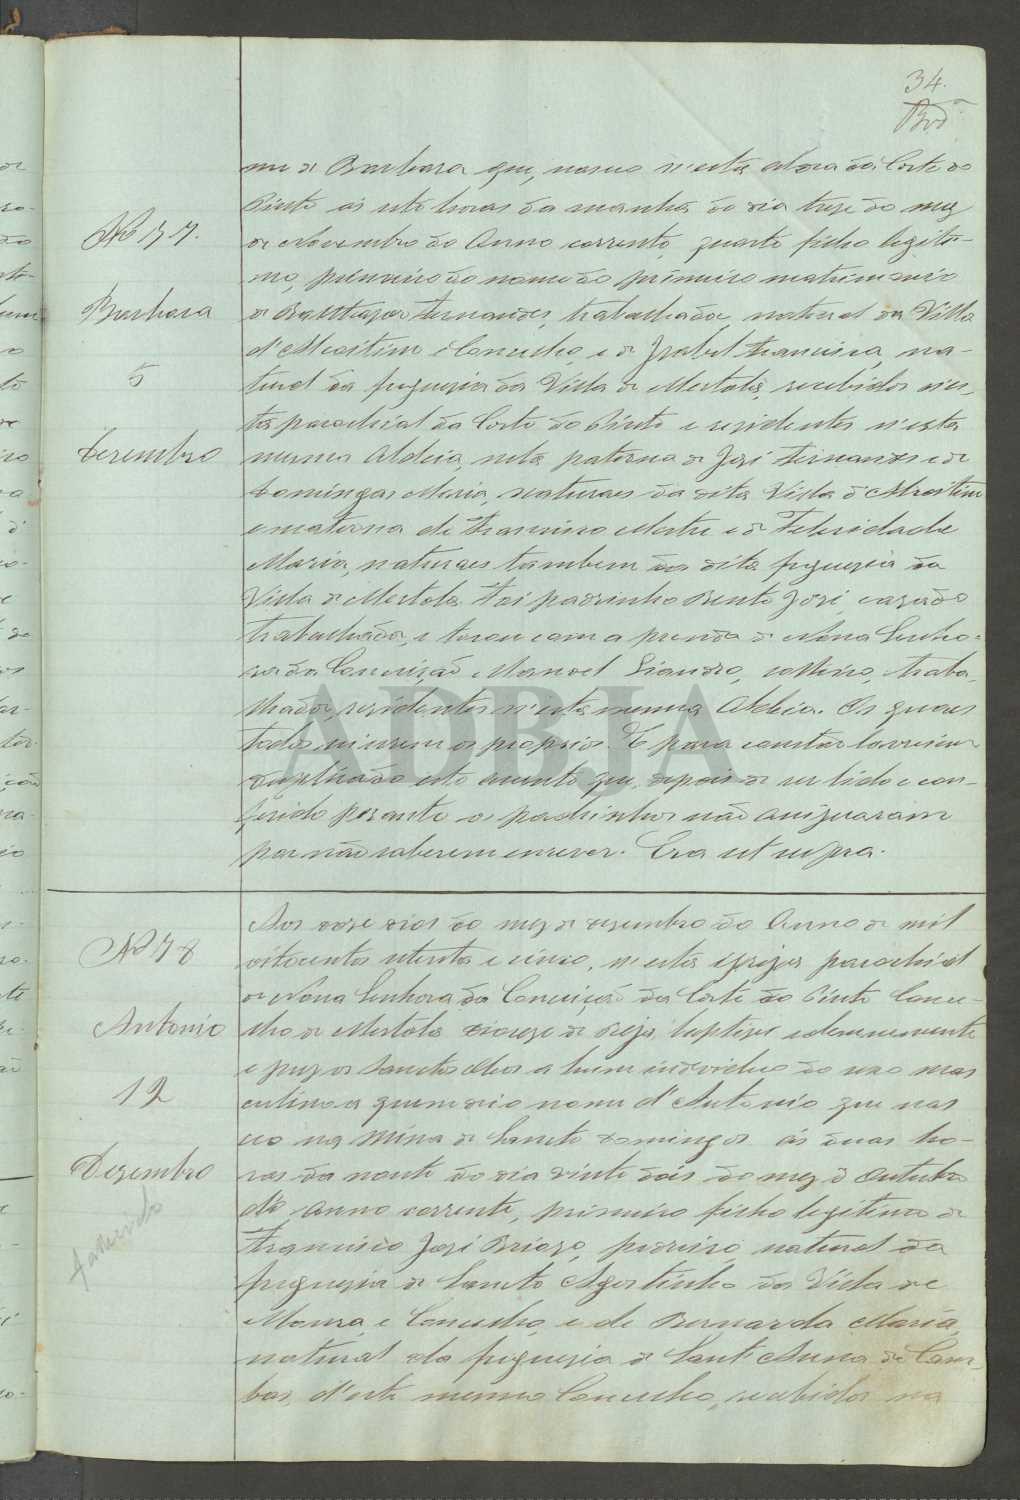 34.
me de Barbara que, nasceo n'esta aldea da Corte do
Pinto ás sete horas da manhã do dia treze do mez
Nº 77.
de Novembro do Anno corrente, quarto filho legiti-
mo, primeiro do nome do primeiro matrimonio
Barbara
de Balthazar Fernandes, trabalhador, natural da Villa
d'Alcoitim e Concelho, e de Izabel Francisca, na-
5
tural da freguezia da Villa de Mertola, recebidos n'es-
ta parochial da Corte do Pinto e rezidentes n'esta
Dezembro
mesma Aldeia, neta paterna de José Fernandes e de
Domingas Maria, naturaes da dita Villa d'Alcoitim
e materna de Francisco Mestre e de Felicidade
Maria, naturaes tambem da dita freguezia da
Villa de Mertola. Foi padrinho Bento José, cazado
trabalhador, e tocou com a prenda de Nossa Senho-
ra da Conceição Manoel Liandro, solteiro, traba-
lhador, rezidentes n'esta mesma Aldeia. Os quaes
todos sei serem os proprios. E para constar lavrei em
duplicado este assento que, depois de ser lido e con-
ferido perante os padrinhos não assignaram
por não saberem escrever. Era ut supra.
ADBJA
Aos doze dias do mez de dezembro do Anno de mil
Nº 78
oitocentos oitenta e cinco, n'esta igreja parochial
de Nossa Senhora da Conceição da Corte do Pinto Conce-
Antonio
lho de Mertola dioceze de Beja, baptizei solemnemente
e puz os Sanctos Oleos a hum individuo do sexo mas
12
culino a quem dei o nome d'Antonio que nas
ceo na Mina de Sancto Domingos ás duas ho-
Dezembro
ras da noute do dia vinte dois do mez d'Outubro
d'o Anno corrente, primeiro filho legitimo de
Francisco José Brioso, pedreiro, natural da
freguezia de Sancto Agostinho da Villa de
Moura e Concelho, e de Bernarda Maria,
natural da freguezia de Sant'Anna de Cam-
bas, d'este mesmo Concelho, recebidos na